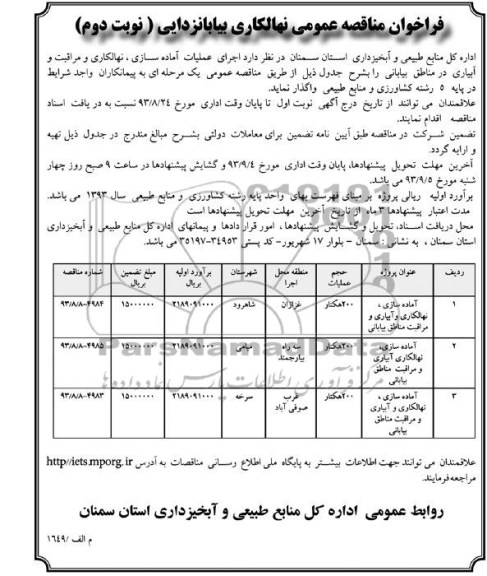 فراخوان مناقصه عمومی نهالکاری بیابانزدایی ( نوبت دوم)
اداره کل منابع طبیعی و آبخیزداری استان سمنان در نظر دارد اجرای عملیات آماده سازی ، نهالکاری و مراقبت و
آبیاری در مناطق بیابانی را بشرح جدول ذیل از طریق مناقصه عمومی یک مرحله ای به پیمانکاران واجد شرایط
در پایه ۵ رشته کشاورزی و منابع طبیعی واگذار نماید.
علاقمندان می توانند از تاریخ درج آگهی نوبت اول تا پایان وقت اداری مورخ ۹۳/۸/۲۴ نسبت به دریافت اسناد
مناقصه اقدام نمایند.
تضمین شرکت در مناقصه طبق آیین نامه تضمین برای معاملات دولتی بشرح مبالغ مندرج در جدول ذیل تهیه
و ارایه گردد.
آخرین مهلت تحویل پیشنهادها، پایان وقت اداری مورخ ۹۳/۹/۴ و گشایش پیشنهادها در ساعت ۹ صبح روز چهار
شنبه مورخ ۹۳/۹/۵ می باشد.
برآورد اولیه ریالی پروژه بر مبنای فهرست بهای واحد پایه رشته کشاورزی و منابع طبیعی سال ۱۳۹۳ می باشد.
مدت اعتبار پیشنهادها ۳ ماه از تاریخ آخرین مهلت تحویل پیشنهادها است
محل دریافت اسناد، تحویل و گشایش پیشنهادها ، امور قرار دادها و پیمانهای اداره کل منابع طبیعی و آبخیزداری
استان سمنان ، به نشانی : سمنان – بلوار ۱۷ شهریور- کد پستی ۳۴۹۵۳-۳۵۱۹۷ می باشد.
ردیف عنوان پروژه حجم عملیات منطقه محل اجرا شهرستان برآورد اولیه بریال مبلغ تضمین بریال شماره مناقصه
۱ آماده سازی ، نهالکاری وآبیاری و مراقبت مناطق بیابانی ۲۰۰هکتار غزازان شاهرود ۲۱۸۹۰۹۱۰۰۰ ۱۵۰۰۰۰۰۰ ۹۳/۸/۸-۴۹۸۴
۲ آماده سازی، نهالکاری وآبیاری و مراقبت مناطق بیابانی ۲۰۰هکتار سه راه بیارجمند میامی ۲۱۸۹۰۹۱۰۰۰ ۱۵۰۰۰۰۰۰ ۹۳/۸/۸-۴۹۸۵
۳ آماده سازی ، نهالکاری و آبیاری و مراقبت مناطق بیابانی ۲۰۰هکتار غرب صوفی آباد سرخه ۲۱۸۹۰۹۱۰۰۰ ۱۵۰۰۰۰۰۰ ۹۳/۸/۸-۴۹۸۳
ParsNamadData
مرکز فرآوری اطلاعات پارس نماد داده ها
علاقمندان می توانند جهت اطلاعات بیشتر به پایگاه ملی اطلاع رسانی مناقصات به آدرس http//iets.mporg.ir
مراجعه فرمایند.
روابط عمومی اداره کل منابع طبیعی و آبخیزداری استان سمنان
م الف /۱۶۴۹